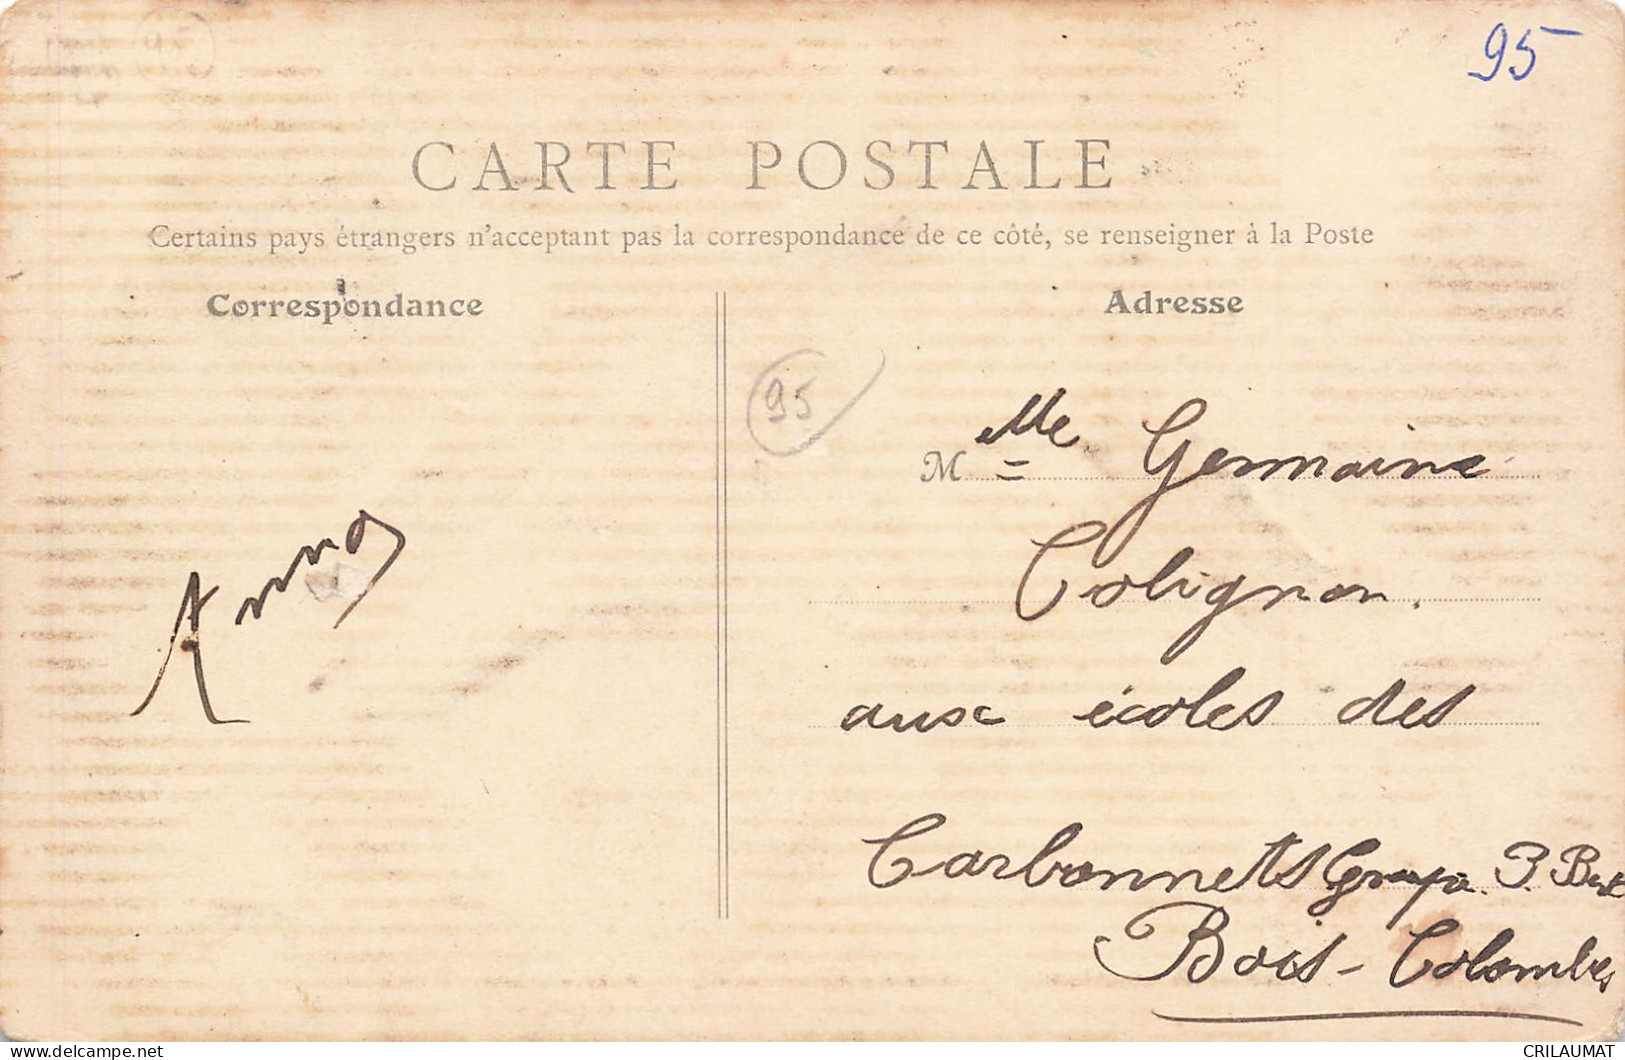 95
CARTE POSTALE
Certains pays étrangers n'acceptant pas la correspondance de ce côté, se renseigner à la Poste
Correspondance
Adresse
95
Melle Germaine
Colignon.
aux écoles des
Carbonnets Groupe P. Bert
Bois-Colombes
CRILAUMAT